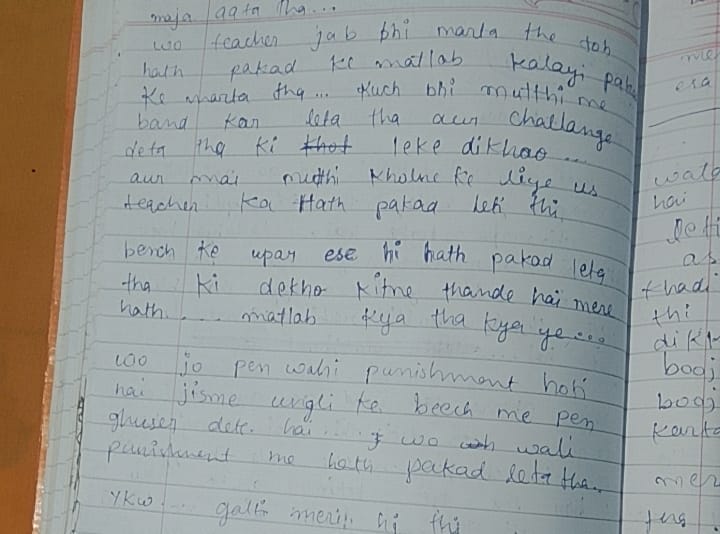 maja aata tha...
wo teacher jab bhi marta the toh
hath pakad ke matlab kalayi pakad
ke marta tha... kuch bhi mutthi me
band kar leta tha aur challange
deta tha ki thot leke dikhao...
aur mai mutthi kholne ke liye us
teacher ka Hath pakad leti thi
bench ke upar ese hi hath pakad leta
tha ki dekho kitne thande hai mere
hath.... matlab kya tha kya ye....
woo jo pen wahi punishment hoti
hai jisme ungli ke beech me pen
ghuser dete hai... wo wali
punishment me hath pakad leta tha..
YKW... galti meri hi thi
me
esa
wale
hai
leti
as
khadi
thi
dikh
booj
booj
karta
mer